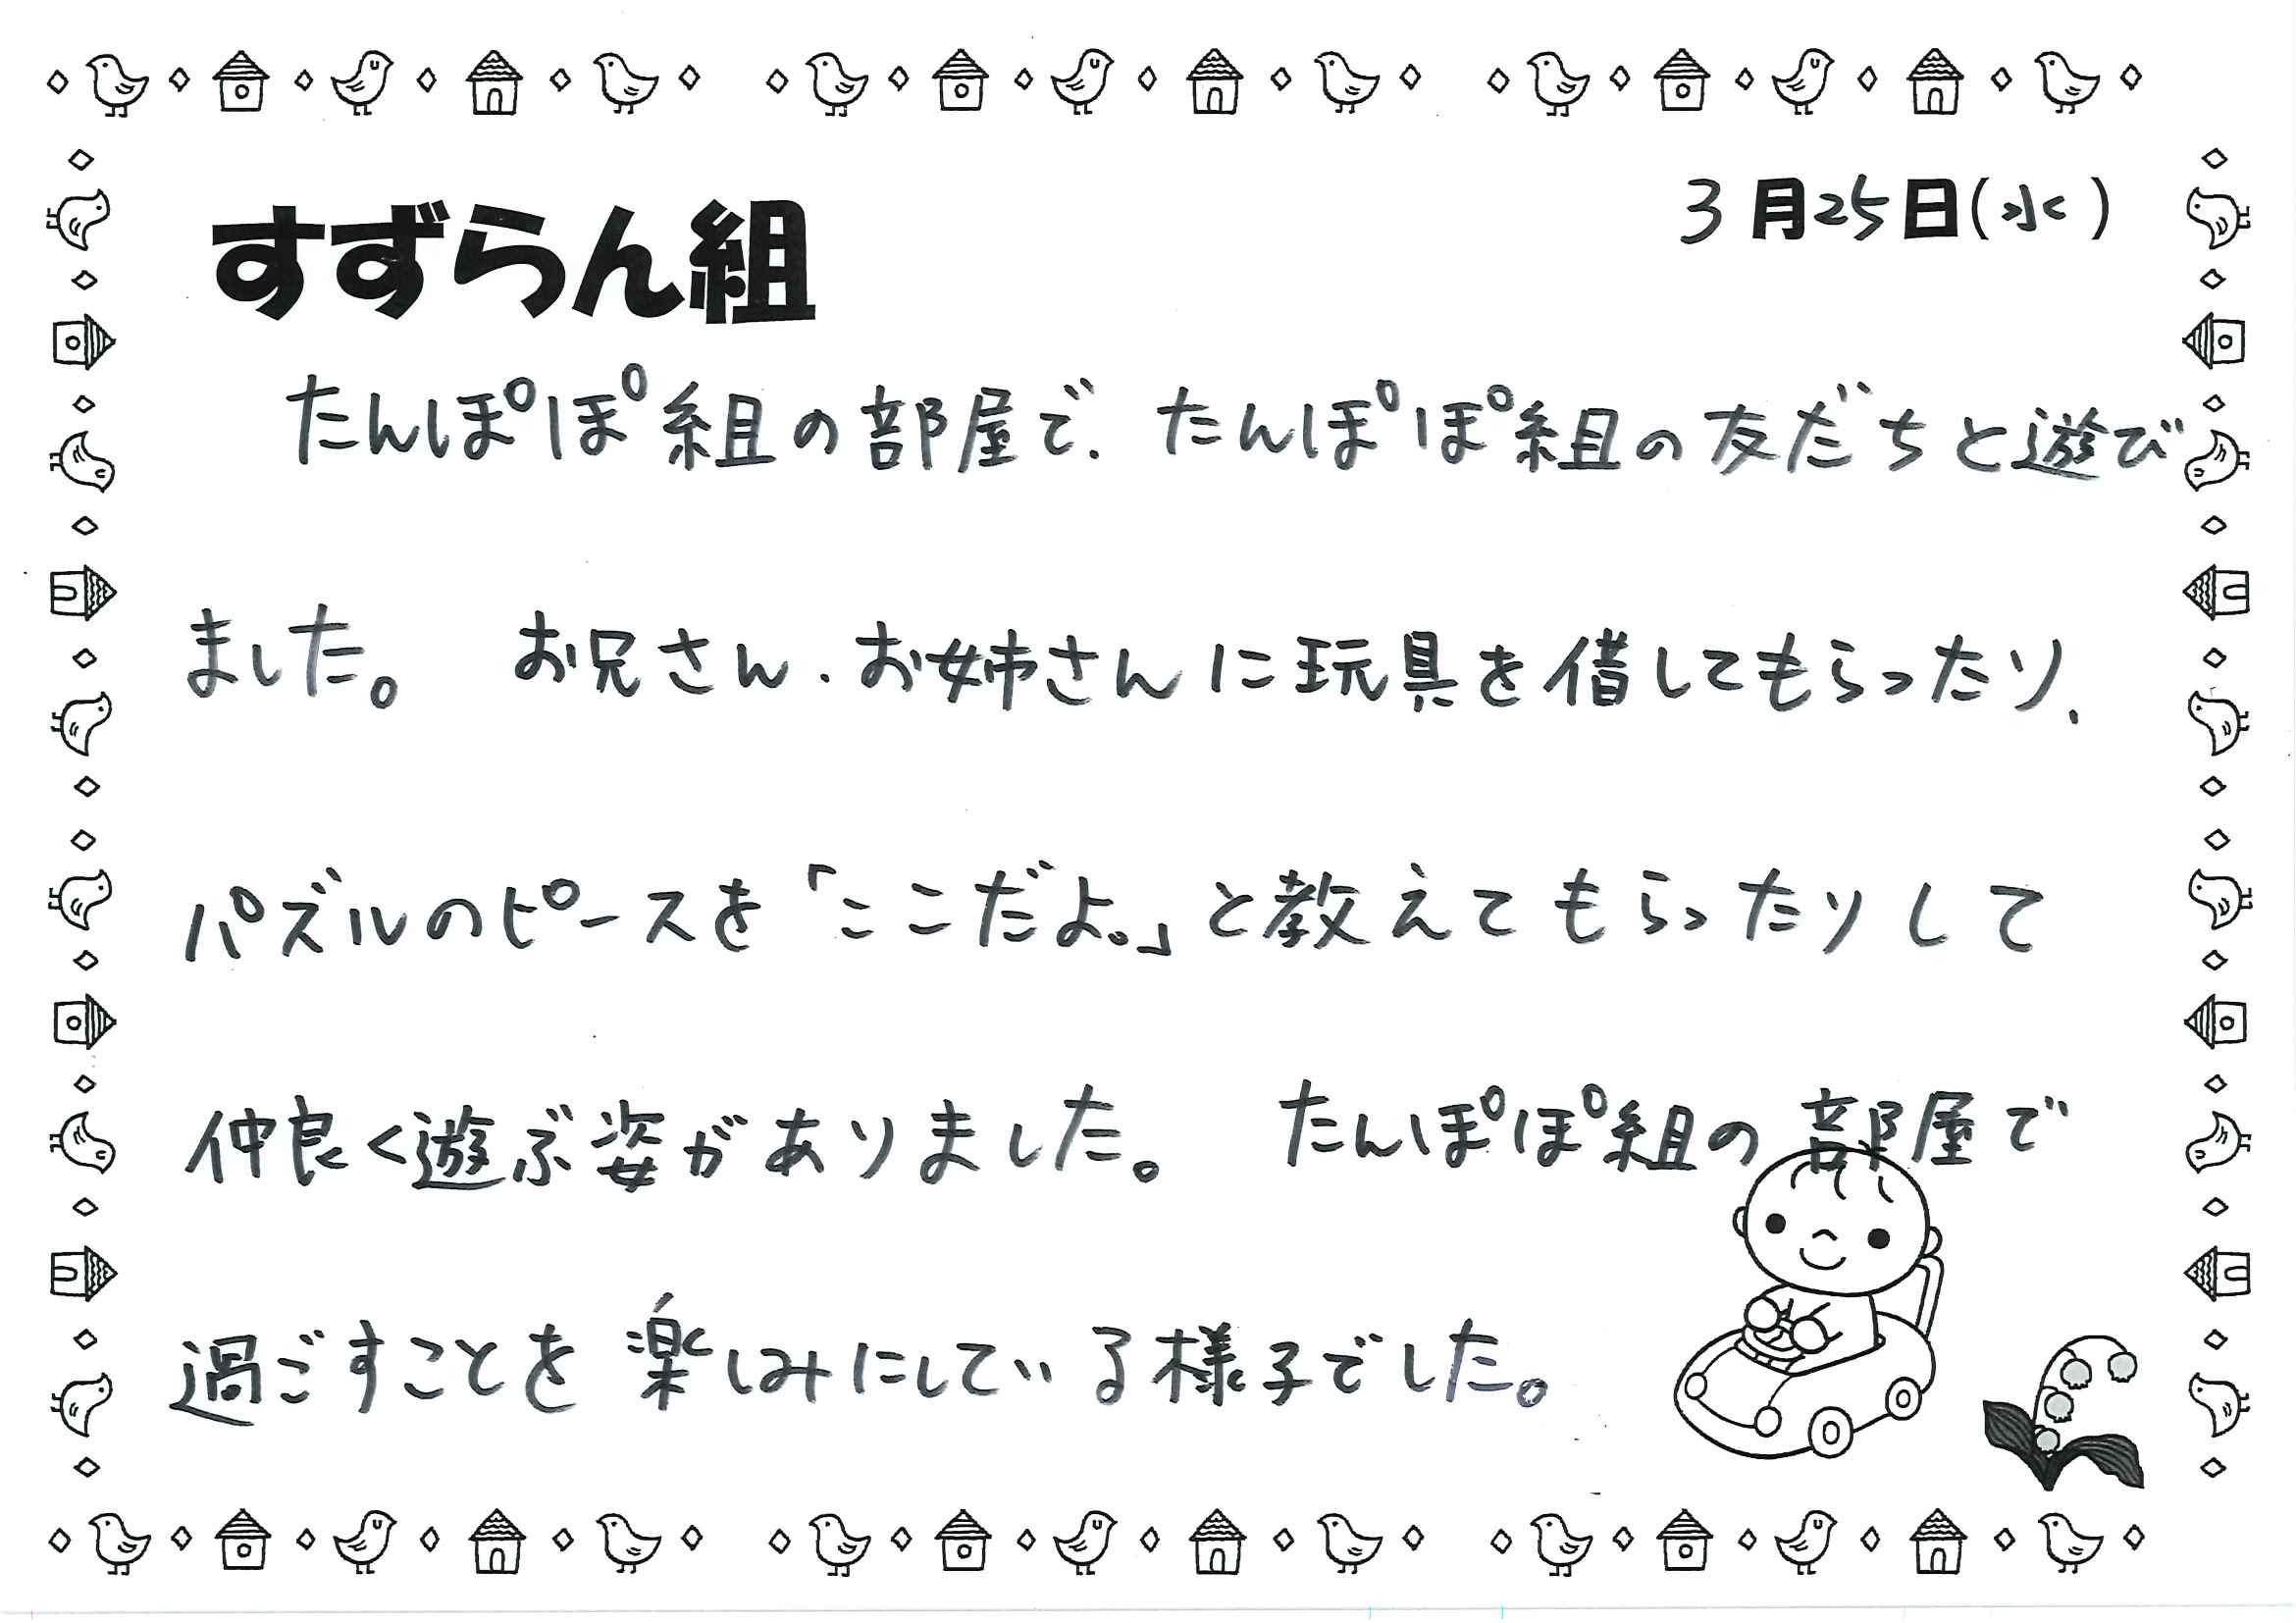 3月25日(水)
すずらん組
たんぽぽ組の部屋で、たんぽぽ組の友だちと遊び
ました。 お兄さん、お姉さんに玩具を借してもらったり、
パズルのピースを「ここだよ。」と教えてもらったりして
仲良く遊ぶ姿がありました。 たんぽぽ組の部屋で
過ごすことを楽しみにしている様子でした。